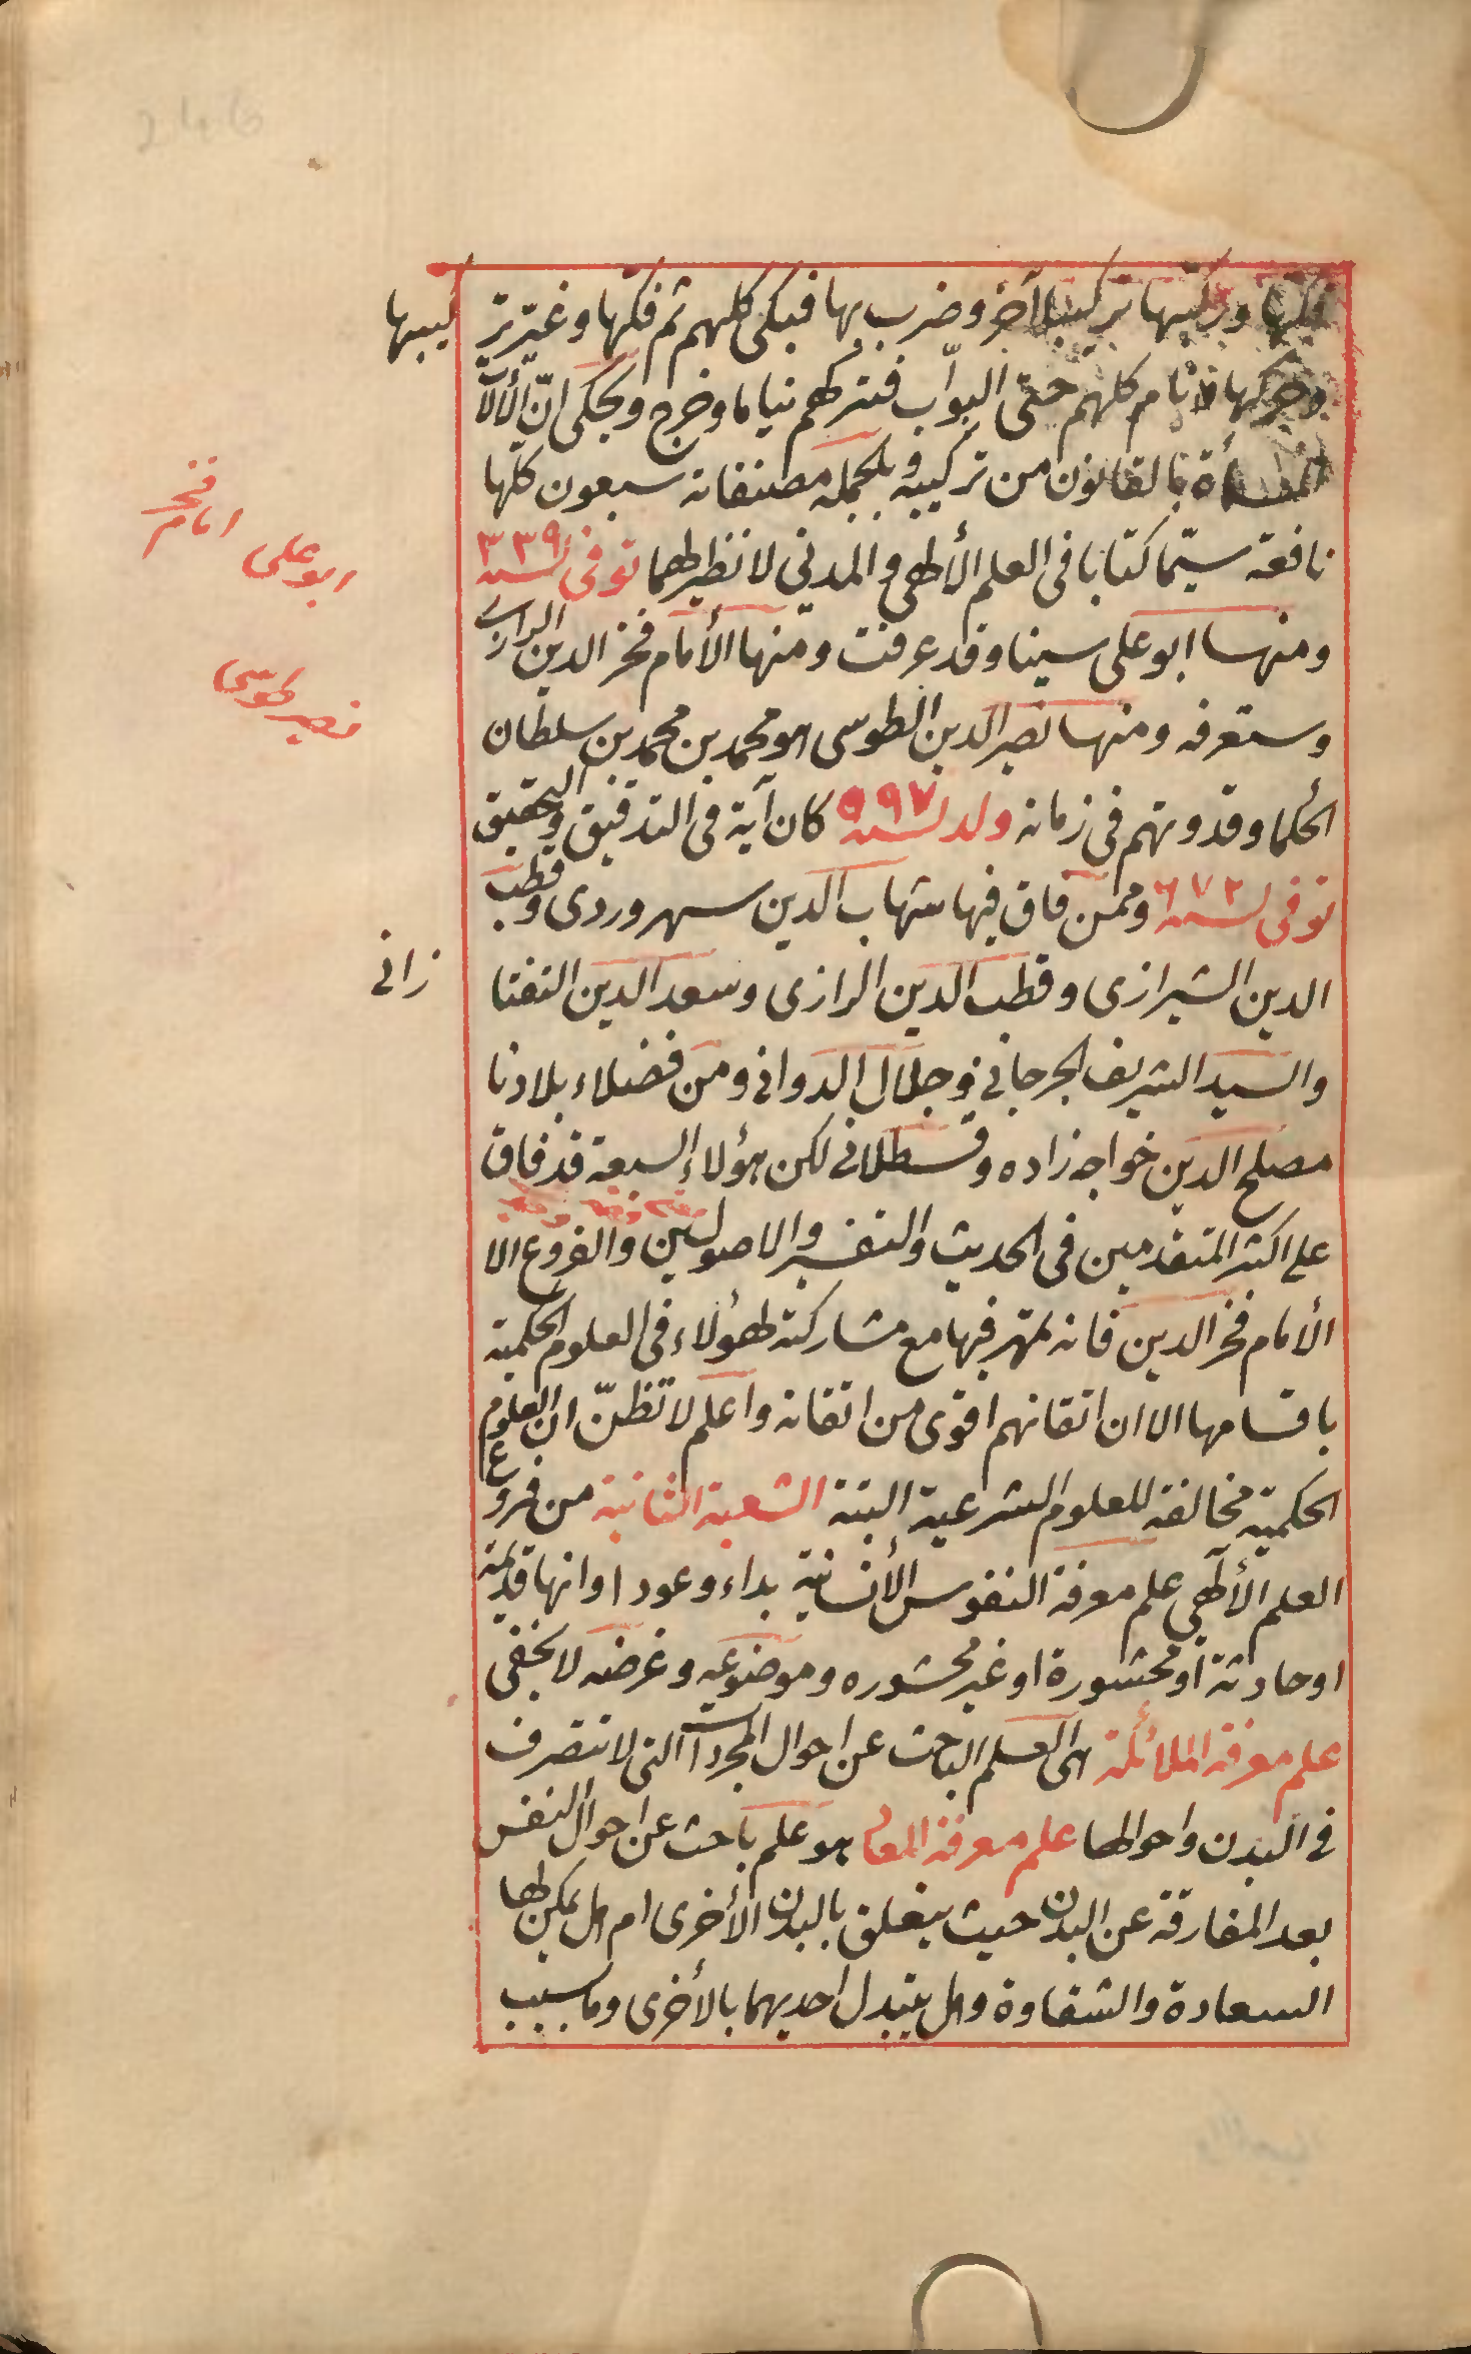 فكها وركبها تركيبا آخر وضرب بها فبكى كلهم ثم فكها وغيّر تر كيبها
وحركها فنام كلهم حتى البوّاب فتركهم نياما وخرج ويحكى انّ الألآت
المسماة بالقانون من تركيبه وبالجمله مصنفاته سبعون كلها
نافعة سيّما كتابا فى العلم الألهى والمدنى لا نظير لهما توفى لسنه ٣٣٩
ومنها ابو على سينا وقد عرفت ومنها الأمام فخر الدين الرازى
وستعرفه ومنها نصير الدين الطوسى هو محمد بن محمد بن سلطان
الحكما وقدوتهم فى زمانه ولد لسنه ٥٩٧ كان آية فى التدقيق والتحقيق
توفى لسنه ٦٧٢ وممن فاق فيها شهاب الدين سهروردى وقطب
الدين الشيرازى وقطب الدين الرازى وسعد الدين التفتا زانى
والسيد الشريف الجرجانى وجلال الدوانى ومن فضلاء بلادنا
مصلح الدين خواجه زاده وقسطلانى لكن هؤلاء السبعة قد فاق
على اكثر المتقدمين فى الحديث والتفسير والاصولين والفروع الا
الأمام فخر الدين فانه تمهر فيها مع مشاركته لهؤلاء فى العلوم الحكمية
باقسامها الا ان اتقانهم اقوى من اتقانه واعلم لا تظنّ ان العلوم
الحكمية مخالفة للعلوم الشرعية البتة الشعبة الثانية من فروع
العلم الألهى علم معرفة النفوس الأنسانية بداء وعودا وانها قديمة
او حادثة او محشورة او غير محشوره وموضوعه وغرضه لا يخفى
علم معرفة الملائكة هى العلم الباحث عن احوال المجردات التى لا تتصرف
فى البدن واحوالها علم معرفة المعاد هو علم باحث عن احوال النفس
بعد المفارقة عن البدن حيث يتعلق بالبدن الأخرى ام هل يمكن لها
السعادة والشقاوة وهل يتبدل احديهما بالأخرى وما سبب
ابو على امام فخر
نصير طوسى
246